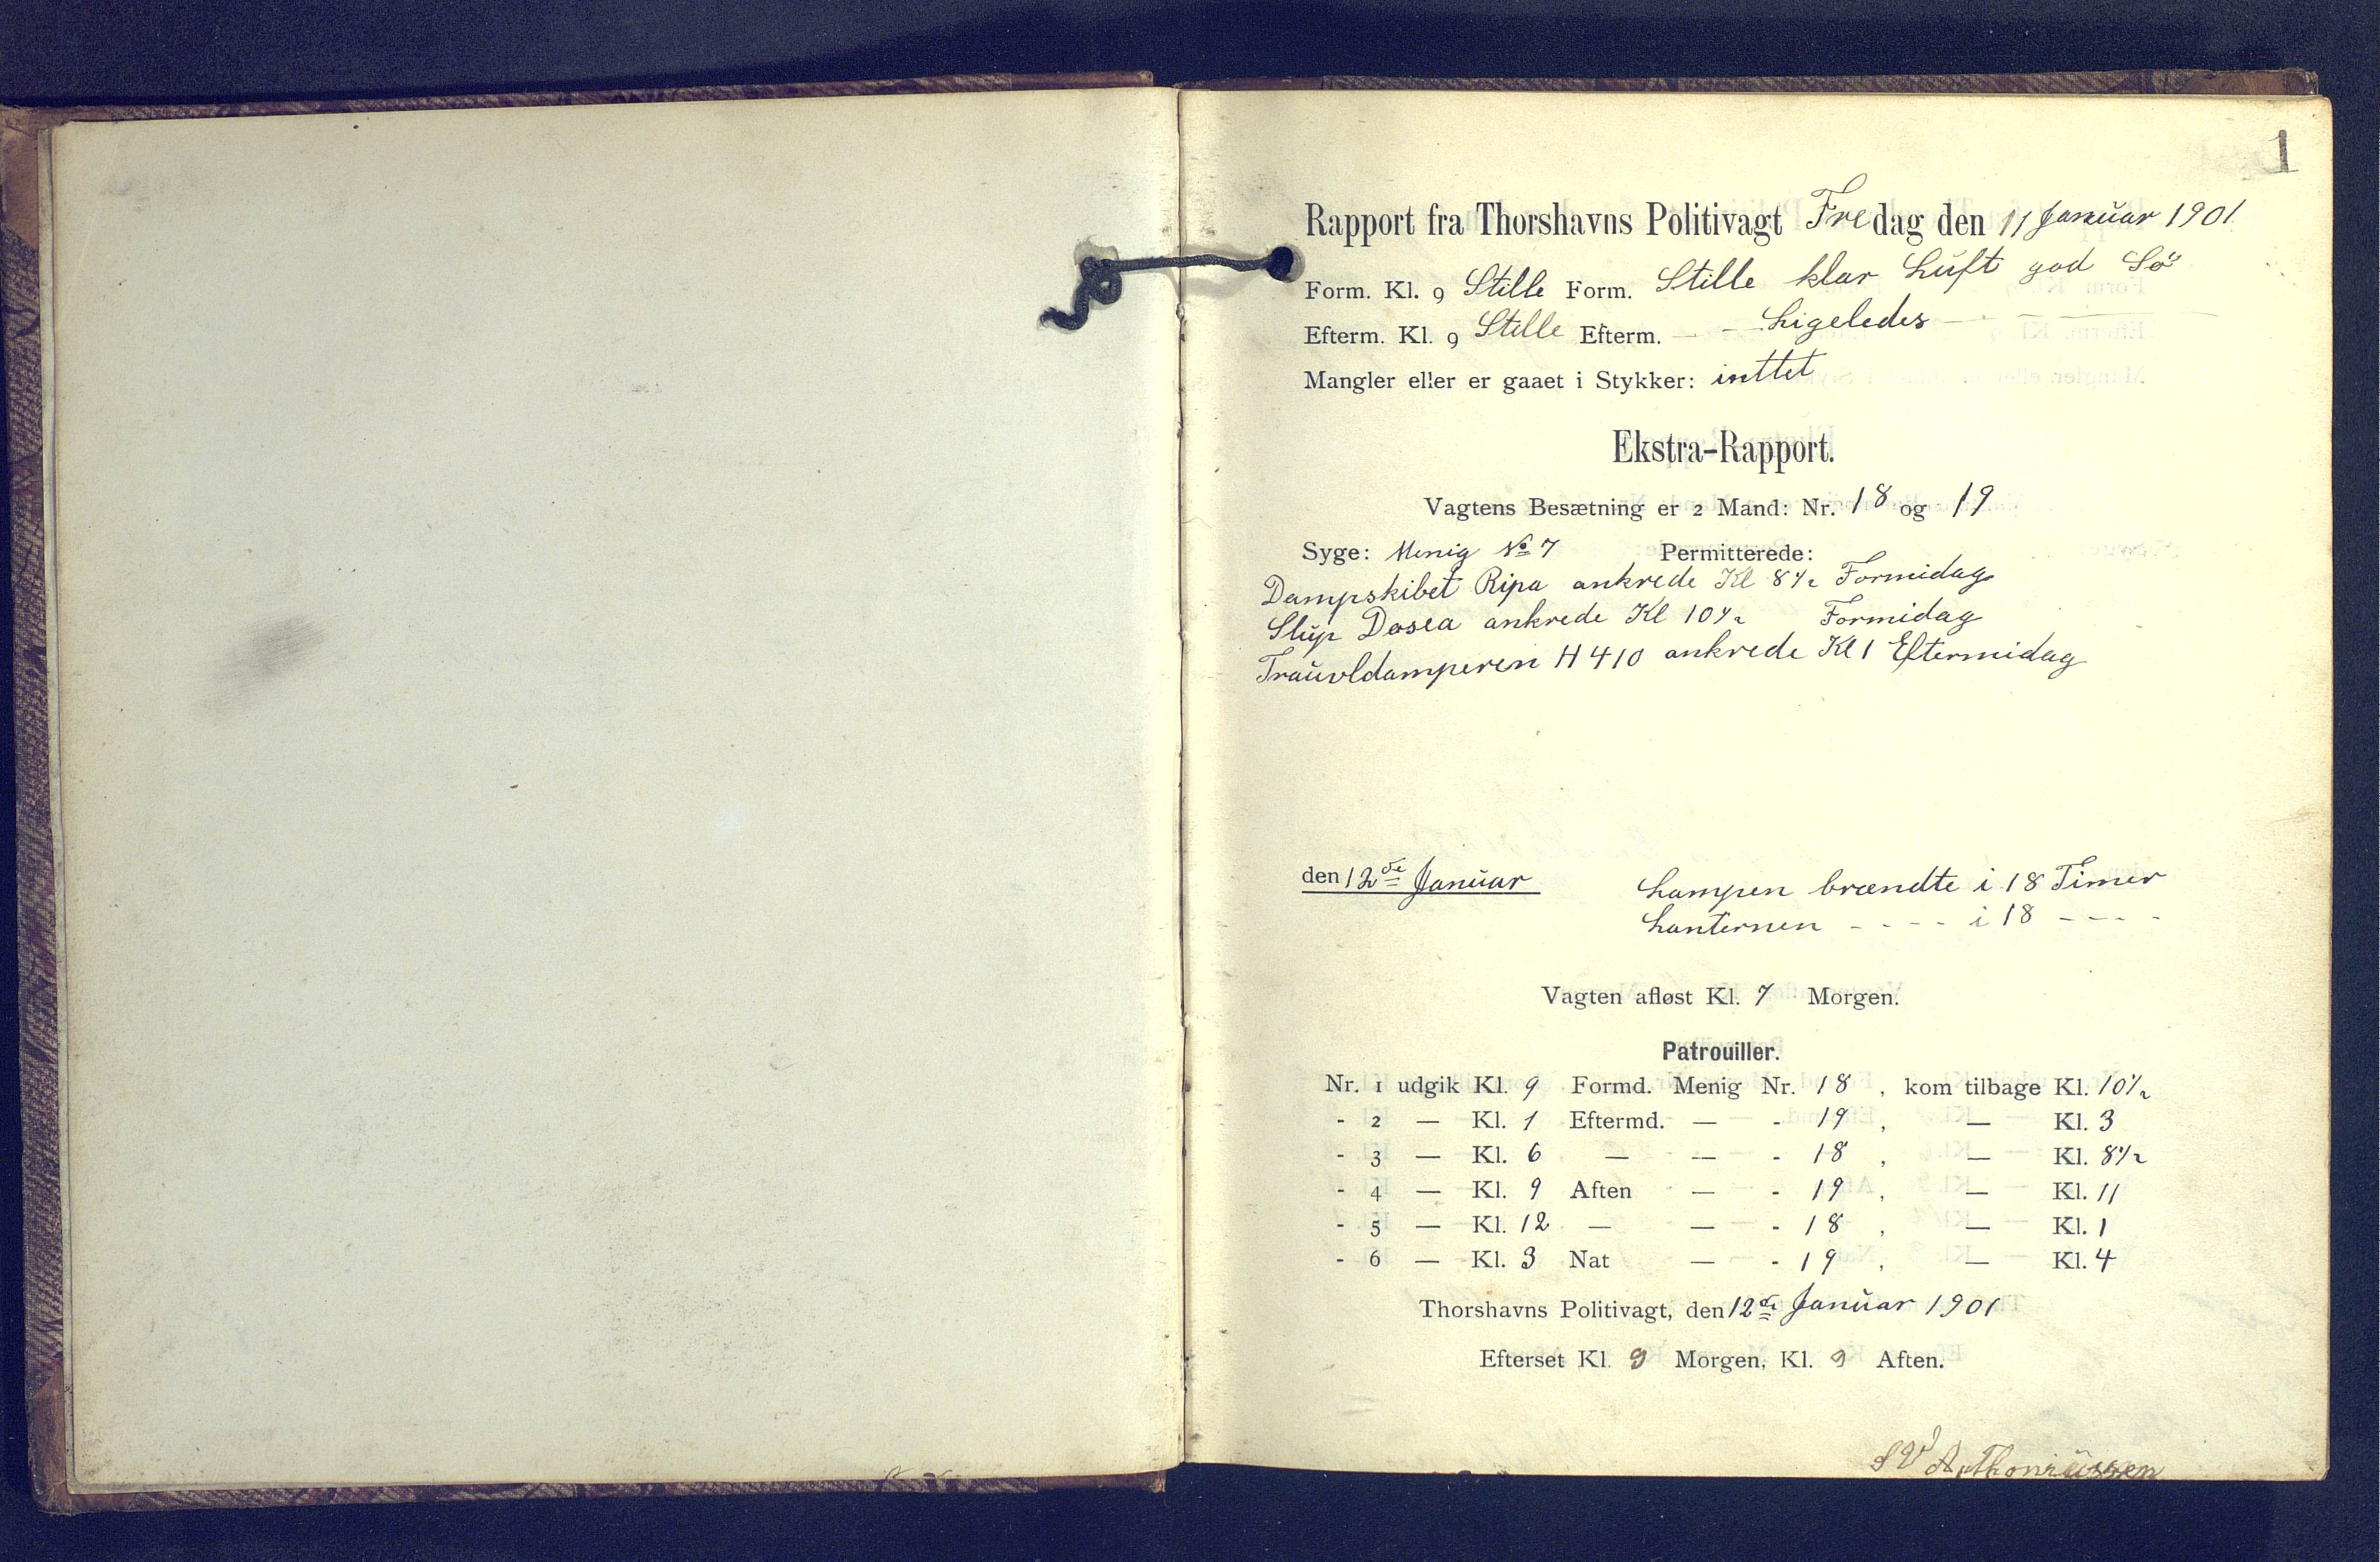 1
Rapport fra Thorshavns Politivagt Fredag den 11 Januar 1901
Form. Kl. 9 Stille Form. Stille klar Luft god Sö
Efterm. Kl. 9 Stille Efterm. — - Ligeledes — - — — —
Mangler eller er gaaet i Stykker: inttet
Ekstra-Rapport.
Vagtens Besætning er 2 Mand: Nr. 18 og 19
Syge: Menig No 7 Permitterede:
Dampskibet Ripa ankrede Kl 8½ Formidag
Slup Dosea ankrede Kl 10½ Formidag
Trauvldamperen H 410 ankrede Kl 1 Eftermidag
den 12de Januar Lampen brændte i 18 Timer
Lanternen - - - - i 18 - - - -
Vagten afløst Kl. 7 Morgen.
Patrouiller.
Nr. 1 udgik Kl. 9 Formd. Menig Nr. 18 , kom tilbage Kl. 10½
- 2 — Kl. 1 Eftermd. — - 19 , — Kl. 3
- 3 — Kl. 6 — — - 18 , — Kl. 8½
- 4 — Kl. 9 Aften — - 19 , — Kl. 11
- 5 — Kl. 12 — — - 18 , — Kl. 1
- 6 — Kl. 3 Nat — - 19 , — Kl. 4
Thorshavns Politivagt, den 12de Januar 1901
Efterset Kl. 9 Morgen, Kl. 9 Aften.